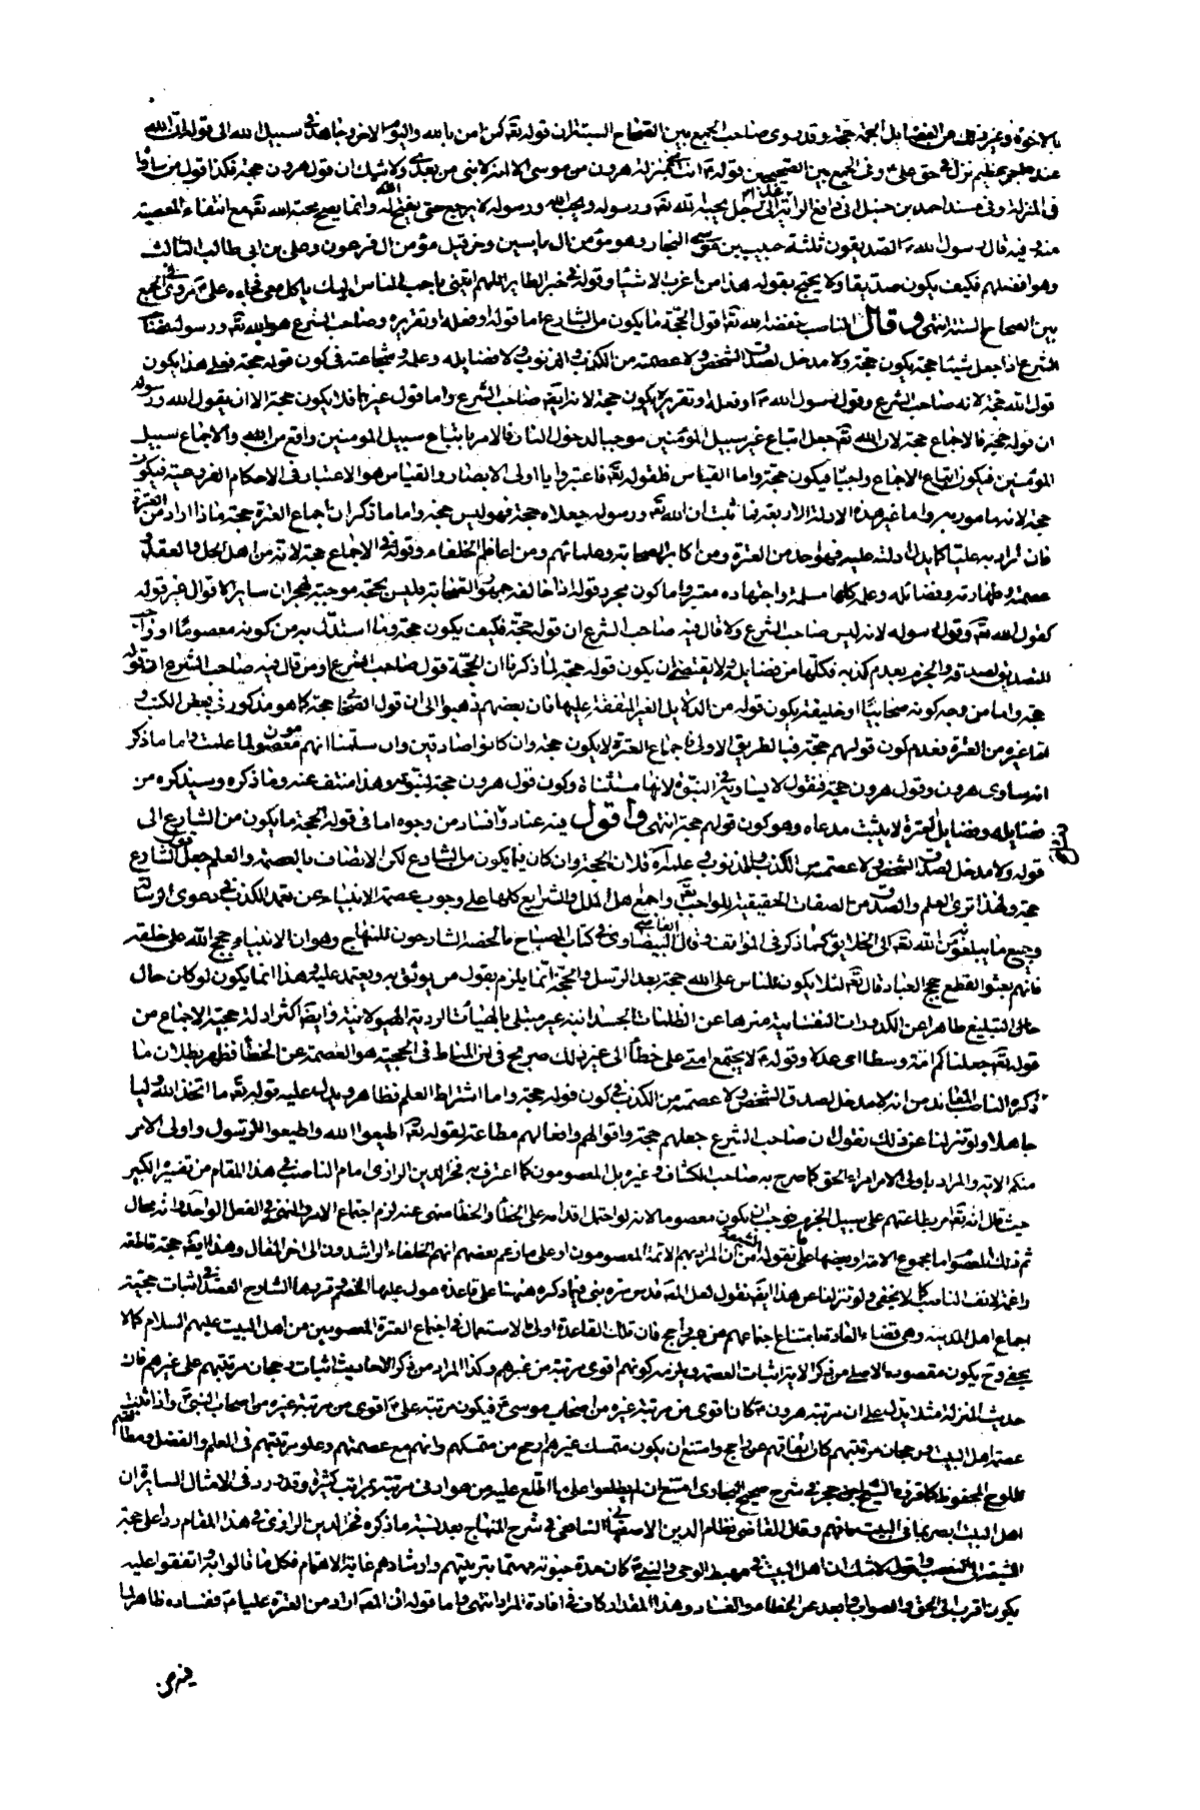 بالاخوة وغير ذلك من الفضايل الجمة حجة وقد روى صاحب الجمع بين الصحاح الستة ان قوله تعه كمن امن بالله واليوم الاخر وجاهد في سبيل الله الى قوله ان الله
عنده اجر عظيم نزل في حق علي ع وفي الجمع بين الصحيحين قوله ص انت مني بمنزلة هرون من موسى الا انه لا نبي من بعدي ولا شك ان قول هرون حجة فكذا قول من ساواه
في المنزلة وفي مسند احمد بن حنبل اني دافع الراية غدا الى رجل يحبه الله تعه ورسوله ويحب الله ورسوله لا يرجع حتى يفتح الله له وانما يصح محبة الله تعه مع انتفاء المعصية
منه وفيه قال رسول الله ص الصديقون ثلثة حبيب بن موسى النجار وهو مؤمن ال ياسين وحزقيل مؤمن ال فرعون وعلي بن ابي طالب الثالث
وهو افضلهم فكيف يكون صديقا ولا يحتج بقوله هذا من اغرب الاشياء وقوله في خبر الطاير اللهم ايتني باحب الناس اليك ياكل معي فجاءه علي ع مروي في الجمع
بين الصحاح الستة انتهى وقال الناصب خفضه الله تعه اقول الحجة ما يكون من الشارع اما قوله او فعله او تقريره وصاحب الشرع هو الله تعه ورسوله فصاحب
الشرع اذا جعل شيئا حجة يكون حجة ولا مدخل لصدق الشخص ولا عصمته من الكذب والذنوب ولا فضايله وعلمه وشجاعته في كون قوله حجة فعلى هذا يكون
قول الله حجة لانه صاحب الشرع وقول رسول الله ص او فعله وتقريره يكون حجة لانه ايضه صاحب الشرع واما قول غيرهما فلا يكون حجة الا ان يقول الله ورسوله
ان قوله حجة فالاجماع حجة لان الله تعه جعل اتباع غير سبيل المؤمنين موجبا لدخول النار فالامر باتباع سبيل المومنين واقع من الله والاجماع سبيل
المؤمنين فيكون اتباع الاجماع واجبا فيكون حجة واما القياس فلقوله تعه فاعتبروا يا اولي الابصار والقياس هو الاعتبار في الاحكام الفرعية فيكون
حجة لانه مامور به واما غير هذه الادلة الاربعة فما ثبت ان الله تعه ورسوله جعلاه حجة فهو ليس حجة واما ما ذكر ان اجماع العترة حجة فماذا اراد من العترة
فان اراد به عليا كما يدل ادلته عليه فهو احد من العترة ومن اكابر الصحابة وعلمائهم ومن اعاظم الخلفاء وقوله في الاجماع حجة لانه من اهل الحل والعقد و
عصمته وطهارته وفضائله وعلمه كلها مسلمة واجتهاده معتبر واما كون مجرد قوله اذا خالفه جمهور الصحابة فليس بحجة موجبة لهجران ساير الاقوال غير قوله
كقول الله تعه وقول رسوله لانه ليس صاحب الشرع ولا قال فيه صاحب الشرع ان قوله حجة فكيف يكون حجة وما استدل به من كونه معصوما او واجب
التصديق لصدقه والجزم بعدم كذبه فكلها من فضايله ولا يقتضي ان يكون قوله حجة لما ذكرنا ان الحجة قول صاحب الشرع او من قال فيه صاحب الشرع ان قوله
حجة واما من وجه كونه صحابيا او خليفة يكون قوله من الدلايل الغير المتفقة عليها فان بعضهم ذهبوا الى ان قول الصحابي حجة كما هو مذكور في بعض الكتب و
اما غيره من العترة فعدم كون قولهم حجة فبالطريق الاولى فاجماع العترة لا يكون حجة وان كانوا صادقين وان سلمنا انهم معصومون لما علمت واما ما ذكر
انه ساوى هرون وقول هرون حجة فنقول لا يساويه في النبوة لانها مستثناة وكون قول هرون حجة لنبوته وهذا منتف عنه وما ذكره وسيذكره من
فضايله وفضايل العترة لا يثبت مدعاه وهو كون قولهم حجة انتهى واقول فيه عناد وافساد من وجوه اما في قوله الحجة ما يكون من الشارع الى
قوله ولا مدخل لصدق الشخص ولا عصمته من الكذب والذنوب وعلمه اه فلان الحجة وان كان فيما يكون من الشارع لكن الاتصاف بالعصمة والعلم جعل الشارع قوله
حجة ولهذا ترى العلم والصدق من الصفات الحقيقية للواجب تعه واجمع اهل الملل والشرايع كلها على وجوب عصمة الانبياء عن تعمد الكذب في دعوى الرسالة
وجميع ما يبلغونه من الله تعه الى الخلايق كما ذكر في المواقف وقال القاضي البيضاوي في كتاب المصباح ما لخصه الشارحون للمنهاج وهو ان الانبياء حجج الله على خلقه
فانهم بعثوا لقطع حجج العباد قال تعه لئلا يكون للناس على الله حجة بعد الرسل والحجة انما يلزم بقول من يوثق به ويعتمد عليه وهذا انما يكون لو كان حال
حالي التبليغ طاهرا عن الكدورات النفسانية منزها عن الظلمات الجسدانية غير مبتلى بالهيئات الردية الهيولانية وايضه اكثر ادلة حجية الاجماع من
قوله تعه جعلناكم امة وسطا اي عدلا وقوله ص لا يجتمع امتي على خطأ الى غير ذلك صريح في ان المناط في الحجية هو العصمة عن الخطأ فظهر بطلان ما
ذكره الناصب المعاند من انه لا مدخل لصدق الشخص ولا عصمته من الكذب في كون قوله حجة واما اشتراط العلم فظاهر ويدل عليه قوله تعه ما اتخذ الله وليا
جاهلا ولو تنزلنا عن ذلك نقول ان صاحب الشرع جعلهم حجة واقوالهم وافعالهم مطاعة لقوله تعه اطيعوا الله واطيعوا الرسول واولي الامر
منكم الاية والمراد باولي الامر امراء الحق كما صرح به صاحب الكشاف وغيره بل المعصومون كما اعترف به فخر الدين الرازي امام الناصب في هذا المقام من تفسيره الكبير
حيث قال انه تعه امر بطاعتهم على سبيل الجزم فوجب ان يكون معصوما لانه لو احتمل اقدامه على الخطأ والخطأ منهي عنه لزم اجتماع الامر والنهي في الفعل الواحد وانه محال
ثم ذلك المعصوم اما مجموع الامة او بعضها على ما يقوله الشيعة من ان المراد بهم الائمة المعصومون او على ما زعم بعضهم انهم الخلفاء الراشدون الى اخر المقال وهذا ايضه حجة قاطعة
راغمة لانف الناصب كما لا يخفى ولو تنزلنا عن هذا ايضه نقول لعل المصه قدس سره بنى فيما ذكره ههنا على قاعدة عول عليها الخصم وقررها الشارح العضدي في اثبات حجية
اجماع اهل المدينة وهي قضاء العادة بامتناع اجماعهم من غير راجح فان تلك القاعدة اولى بالاستعمال في اجماع العترة المعصومين من اهل البيت عليهم السلام كما لا
يخفى وح يكون مقصوده الاصلي من ذكر الاية اثبات العصمة ويلزمه كونهم اقوى مرتبة من غيرهم وكذا المراد من ذكر الاحاديث اثبات رجحان مرتبتهم على غيرهم فان
حديث المنزلة مثلا يدل على ان مرتبة هرون كما كان اقوى من مرتبة غيره من اصحاب موسى ع فيكون مرتبة علي ع اقوى من مرتبة غيره من اصحاب النبي ص واذا ثبت
عصمة اهل البيت ورجحان مرتبتهم كان اتفاقهم عن راجح وامتنع ان يكون متمسك غيرهم ارجح من متمسكهم وانهم مع عصمتهم وعلو مرتبتهم في العلم والفضل ومطالعتهم
للوح المحفوظ كما قرره الشيخ ابن حجر في شرح صحيح البخاري امتنع ان لم يطلعوا على ما اطلع عليه من هو ادنى مرتبة بمراتب كثيرة وقد ورد في الامثال السايرة ان
اهل البيت ابصر بما في البيت وقال القاضي نظام الدين الاصفهاني الشافعي في شرح المنهاج بعد نسبة ما ذكره فخر الدين الرازي في هذا المقام ردا على حجة
الشيعة الى التعصب واقول لا شك ان اهل البيت في مهبط الوحي والنبي ص كان مدة حيوته مهتما بتربيتهم وارشادهم غاية الاهتمام فكل ما قالوا به واتفقوا عليه
يكون اقرب الى الحق والصواب وابعد عن الخطاء والفساد وهذا المقدار كاف في افادة المراد انتهى واما قوله ان المصه اراد من العترة عليا ع ففساده ظاهر لما
فيه من